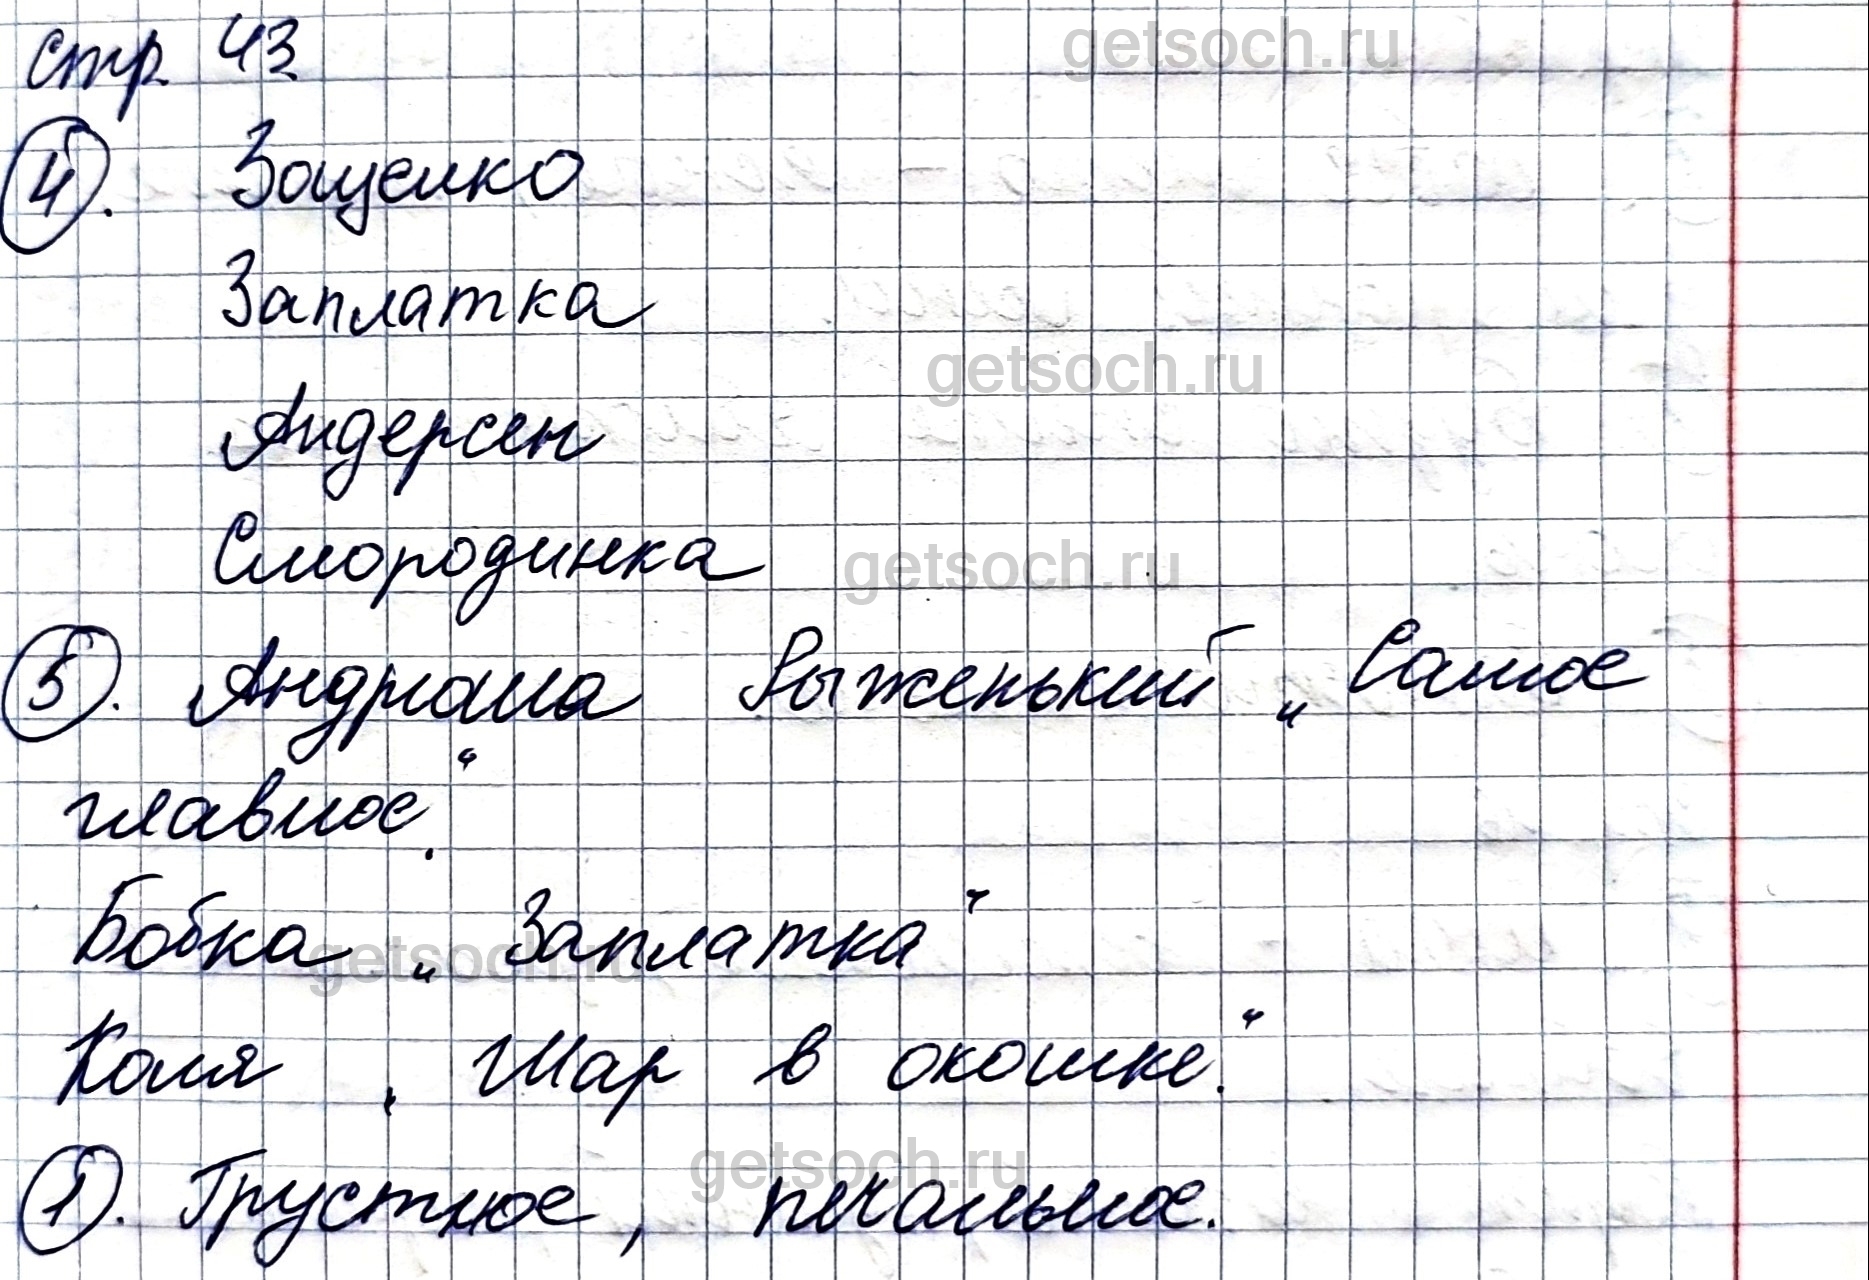 стр. 43
getsoch.ru
4. Зощенко
Заплатка
getsoch.ru
Андерсен
Смородинка
getsoch.ru
5. Андрюша Рыженький „Самое
главное."
Бобка „Заплатка"
getsoch.ru
Коля „Шар в окошке."
getsoch.ru
1. Грустное, печальное.